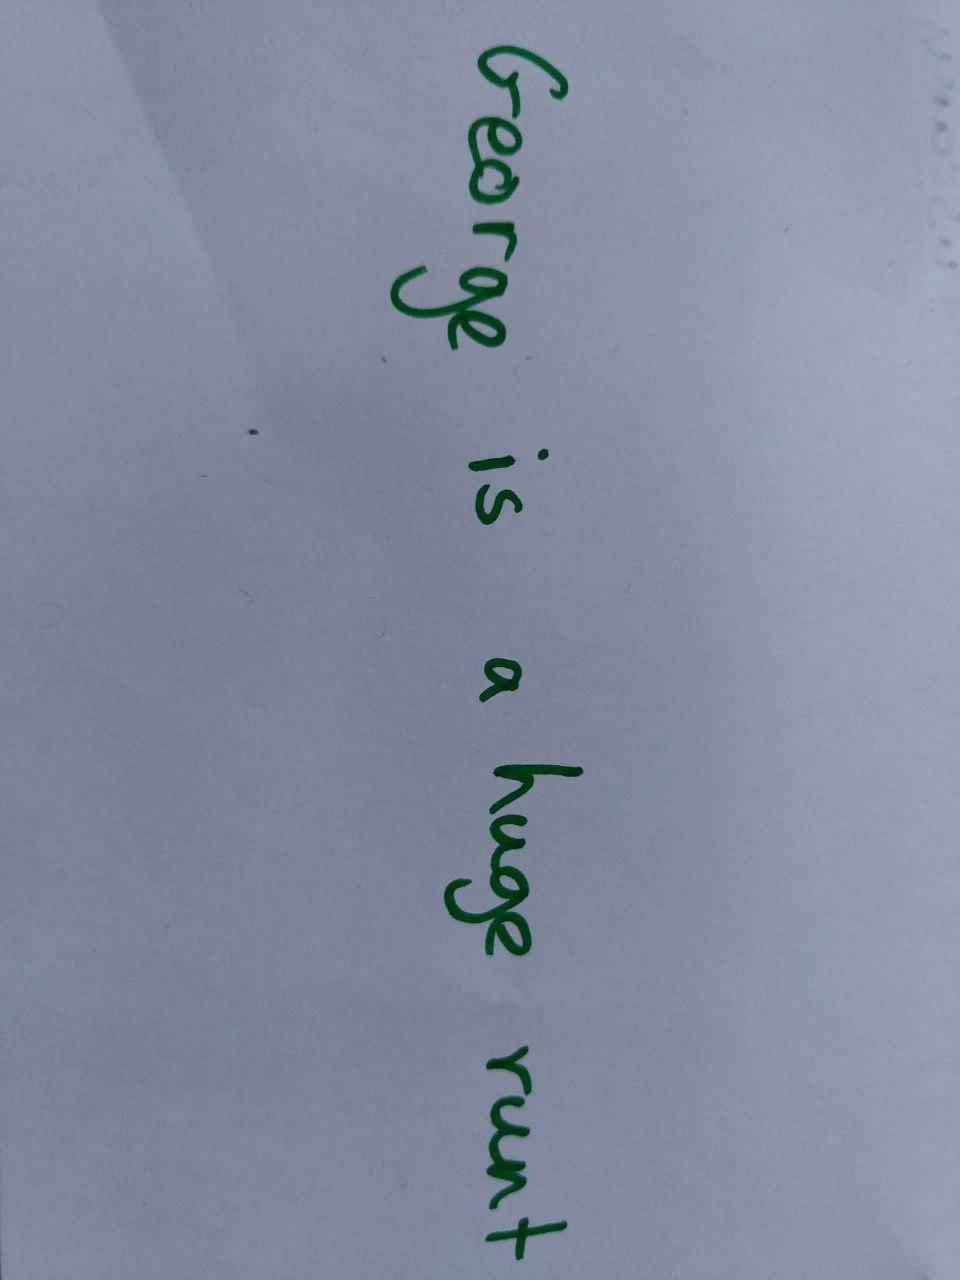 George is a huge runt